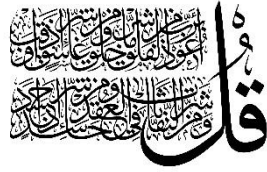 قُلْ
أَعُوذُ بِرَبِّ الْفَلَقِ مِن شَرِّ مَا خَلَقَ وَمِن شَرِّ غَاسِقٍ إِذَا وَقَبَ
وَمِن شَرِّ النَّفَّاثَاتِ فِي الْعُقَدِ وَمِن شَرِّ حَاسِدٍ إِذَا حَسَدَ